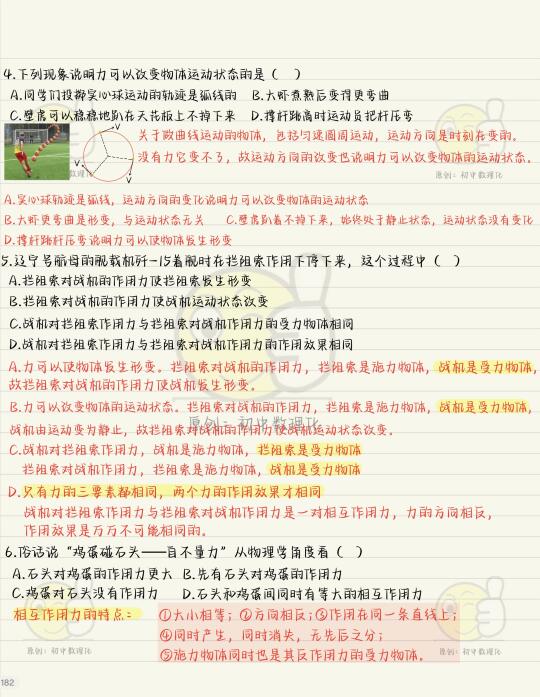 4.下列现象说明力可以改变物体运动状态的是（ ）
A.同学们投掷实心球运动的轨迹是弧线的 B.大虾煮熟后变得更弯曲
C.壁虎可以稳稳地趴在天花板上不掉下来 D.撑杆跳高时运动员把杆压弯
关于做曲线运动的物体，包括匀速圆周运动，运动方向是时刻在变的，
没有力它变不了，故运动方向的改变也说明力可以改变物体的运动状态。
V
V
V
原创：初中数理化
A.实心球轨迹是弧线，运动方向的变化说明力可以改变物体的运动状态
B.大虾更弯曲是形变，与运动状态无关 C.壁虎趴着不掉下来，始终处于静止状态，运动状态没有变化
D.撑杆跳杆压弯说明力可以使物体发生形变
5.辽宁号航母的舰载机歼-15着舰时在拦阻索作用下停下来，这个过程中（ ）
A.拦阻索对战机的作用力使拦阻索发生形变
B.拦阻索对战机的作用力使战机运动状态改变
C.战机对拦阻索作用力与拦阻索对战机作用力的受力物体相同
D.战机对拦阻索作用力与拦阻索对战机作用力的作用效果相同
A.力可以使物体发生形变。拦阻索对战机的作用力，拦阻索是施力物体，战机是受力物体，
故拦阻索对战机的作用力使战机发生形变。
B.力可以改变物体的运动状态。拦阻索对战机的作用力，拦阻索是施力物体，战机是受力物体，
战机由运动变为静止，故拦阻索对战机的作用力使战机运动状态改变。
原创：初中数理化
C.战机对拦阻索作用力，战机是施力物体，拦阻索是受力物体
拦阻索对战机作用力，拦阻索是施力物体，战机是受力物体
D.只有力的三要素都相同，两个力的作用效果才相同
战机对拦阻索作用力与拦阻索对战机作用力是一对相互作用力，力的方向相反，
作用效果是万万不可能相同的。
6.俗话说“鸡蛋碰石头——自不量力”从物理学角度看（ ）
A.石头对鸡蛋的作用力更大 B.先有石头对鸡蛋的作用力
C.鸡蛋对石头没有作用力 D.石头和鸡蛋间同时有等大的相互作用力
相互作用力的特点： ①大小相等；②方向相反；③作用在同一条直线上；
④同时产生，同时消失，无先后之分；
⑤施力物体同时也是其反作用力的受力物体。
原创：初中数理化
原创：初中数理化
182